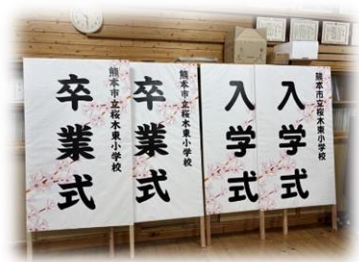 熊本市立桜木東小学校
卒業式
熊本市立桜木東小学校
卒業式
熊本市立桜木東小学校
入学式
熊本市立桜木東小学校
入学式